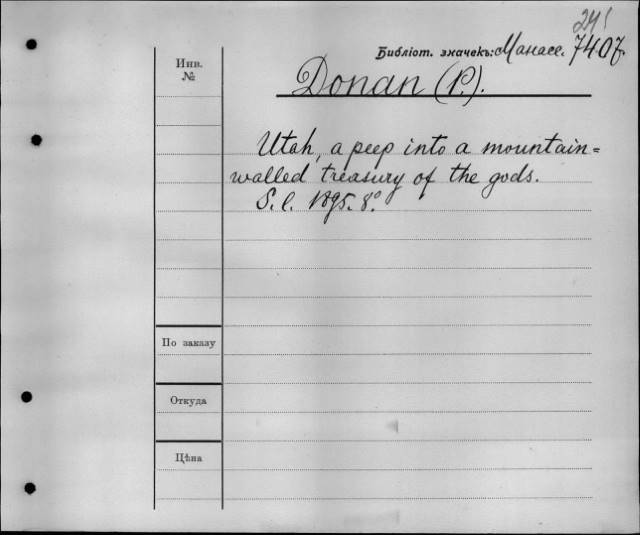 241
Библіот. значекъ: Манасе. 7407
Инв.
№
Donan (P.).
Utah, a peep into a mountain=
walled treasury of the gods.
S. l. 1895. 8°.
По заказу
Откуда
Цѣна